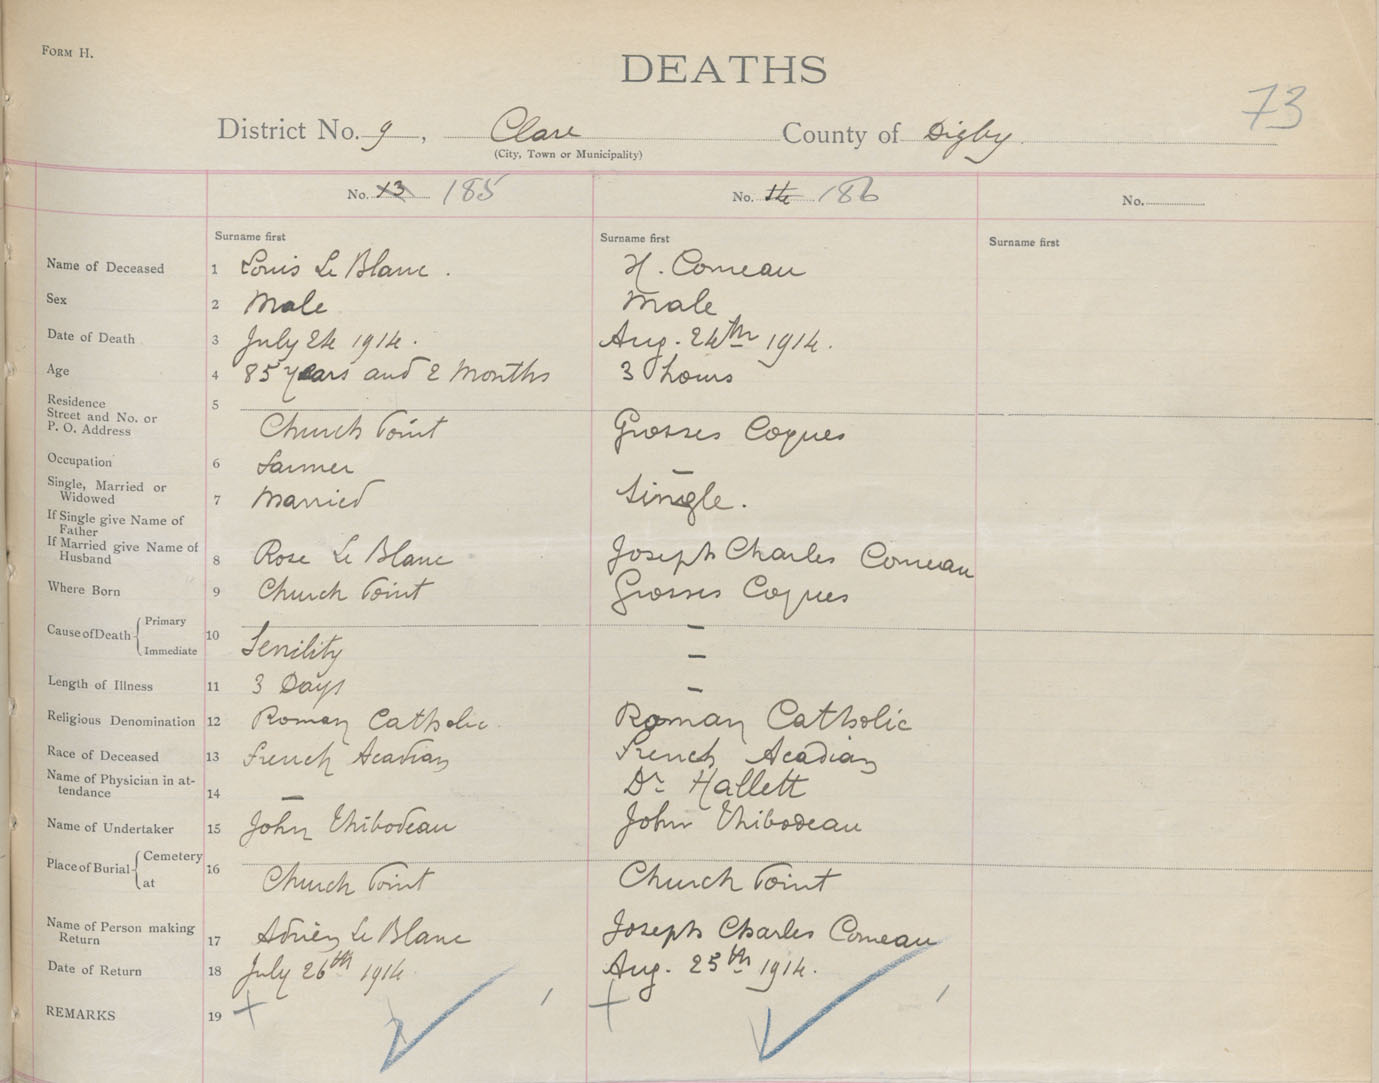 FORM H.
DEATHS
73
District No. 9, Clare County of Digby.
(City, Town or Municipality)
No. 13 185 No. 14 186 No.
Surname first Surname first Surname first
Name of Deceased 1 Louis Le Blanc. H. Comeau
Sex 2 Male Male
Date of Death 3 July 24 1914. Aug. 24th 1914.
Age 4 85 years and 2 Months 3 hours
Residence 5
Street and No. or
P. O. Address Church Point Grosses Coques
Occupation 6 Farmer –
Single, Married or
Widowed 7 Married Single.
If Single give Name of
Father
If Married give Name of
Husband 8 Rose Le Blanc Joseph Charles Comeau
Where Born 9 Church Point Grosses Coques
Cause of Death Primary –
10
Immediate Senility –
Length of Illness 11 3 Days –
Religious Denomination 12 Roman Catholic Roman Catholic
Race of Deceased 13 French Acadian French Acadian
Name of Physician in at-
tendance 14 – Dr Hallett
Name of Undertaker 15 John Thibodeau John Thibodeau
Place of Burial Cemetery
16
at Church Point Church Point
Name of Person making
Return 17 Adrien Le Blanc Joseph Charles Comeau
Date of Return 18 July 26th 1914 Aug. 25th 1914.
REMARKS 19 + +